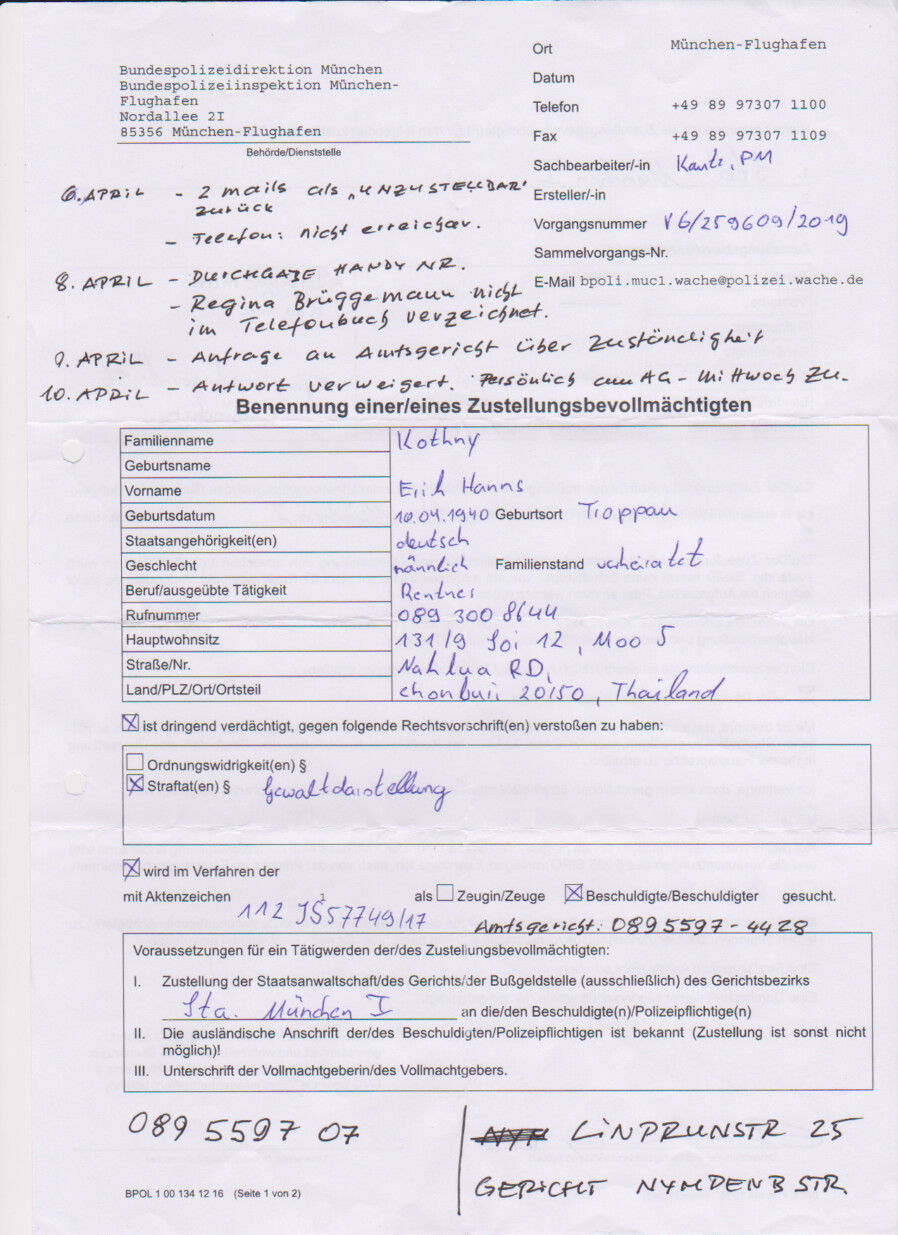 Bundespolizeidirektion München
Bundespolizeiinspektion München-
Flughafen
Nordallee 2I
85356 München-Flughafen
Behörde/Dienststelle
Ort München-Flughafen
Datum
Telefon +49 89 97307 1100
Fax +49 89 97307 1109
Sachbearbeiter/-in Kautz, PM
Ersteller/-in
Vorgangsnummer V6/259609/2019
Sammelvorgangs-Nr.
E-Mail bpoli.mucl.wache@polizei.wache.de
6. APRIL - 2 mails als „UNZUSTELLBAR"
zurück
- Telefon: nicht erreichbar.
8. APRIL - DURCHGABE HANDY NR.
- Regina Brüggemann nicht
im Telefonbuch verzeichnet.
9. APRIL - Anfrage an Amtsgericht über Zuständigkeit
10. APRIL - Antwort verweigert. Persönlich zum AG - Mittwoch ZU.
Benennung einer/eines Zustellungsbevollmächtigten
Familienname Kothny
Geburtsname
Vorname Erich Hanns
Geburtsdatum 10.04.1940 Geburtsort Troppau
Staatsangehörigkeit(en) deutsch
Geschlecht männlich Familienstand verheiratet
Beruf/ausgeübte Tätigkeit Rentner
Rufnummer 089 300 8644
Hauptwohnsitz 131/9 Soi 12, Moo 5
Straße/Nr. Naklua RD,
Land/PLZ/Ort/Ortsteil Chonburi 20150, Thailand
ist dringend verdächtigt, gegen folgende Rechtsvorschrift(en) verstoßen zu haben:
Ordnungswidrigkeit(en) §
Straftat(en) § Gewaltdarstellung
wird im Verfahren der
mit Aktenzeichen 112 JS57749/17 als Zeugin/Zeuge Beschuldigte/Beschuldigter gesucht.
Amtsgericht: 089 5597-4428
Voraussetzungen für ein Tätigwerden der/des Zustellungsbevollmächtigten:
I. Zustellung der Staatsanwaltschaft/des Gerichts/der Bußgeldstelle (ausschließlich) des Gerichtsbezirks
Sta. München I an die/den Beschuldigte(n)/Polizeipflichtige(n)
II. Die ausländische Anschrift der/des Beschuldigten/Polizeipflichtigen ist bekannt (Zustellung ist sonst nicht
möglich)!
III. Unterschrift der Vollmachtgeberin/des Vollmachtgebers.
089 5597 07
LINPRUNSTR 25
GERICHT NYMPENB STR.
BPOL 1 00 134 12 16 (Seite 1 von 2)